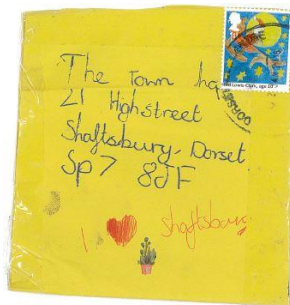 The Town ha
21 Highstreet
Shaftsbury, Dorset
Sp7 8JF
I Shaftsbury